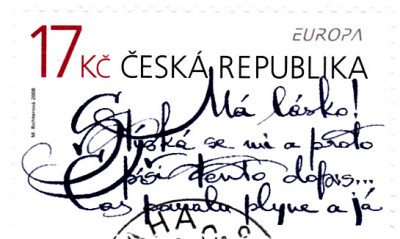 EUROPA
17 Kč ČESKÁ REPUBLIKA
M. Richterová 2008
Má lásko!
Stýská se mi a proto
píši tento dopis...
Čas pomalu plyne a já
HAGS